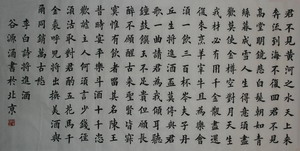 君不見黃河之水天上來
奔流到海不復回君不見
高堂明鏡悲白髮朝如青
絲暮成雪人生得意須盡
歡莫使金樽空對月天生
我材必有用千金散盡還
復來烹羊宰牛且為樂會
須一飲三百杯岑夫子丹
丘生將進酒君莫停與君
歌一曲請君為我傾耳聽
鐘鼓饌玉不足貴但願長
醉不願醒古來聖賢皆寂
寞惟有飲者留其名陳王
昔時宴平樂斗酒十千恣
歡謔主人何為言少錢徑
須沽取對君酌五花馬千
金裘呼兒將出換美酒與
爾同銷萬古愁
李白詩將進酒
谷源涌書於北京